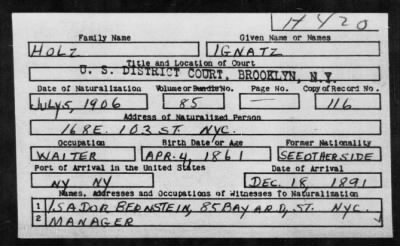 H 420
Family Name Given Name or Names
HOLZ IGNATZ
Title and Location of Court
U. S. DISTRICT COURT, BROOKLYN, N.Y.
Date of Naturalization Volume or Bundle No. Page No. Copy of Record No.
JULY 5, 1906 85 — 116
Address of Naturalized Person
168 E. 103 ST. NYC.
Occupation Birth Date or Age Former Nationality
WAITER APR. 4, 1861 SEE OTHER SIDE
Port of Arrival in the United States Date of Arrival
NY NY DEC. 18, 1891
Names, Addresses and Occupations of Witnesses To Naturalization
1 ISADOR BERNSTEIN, 85 BAYARD, ST. NYC.
2 MANAGER